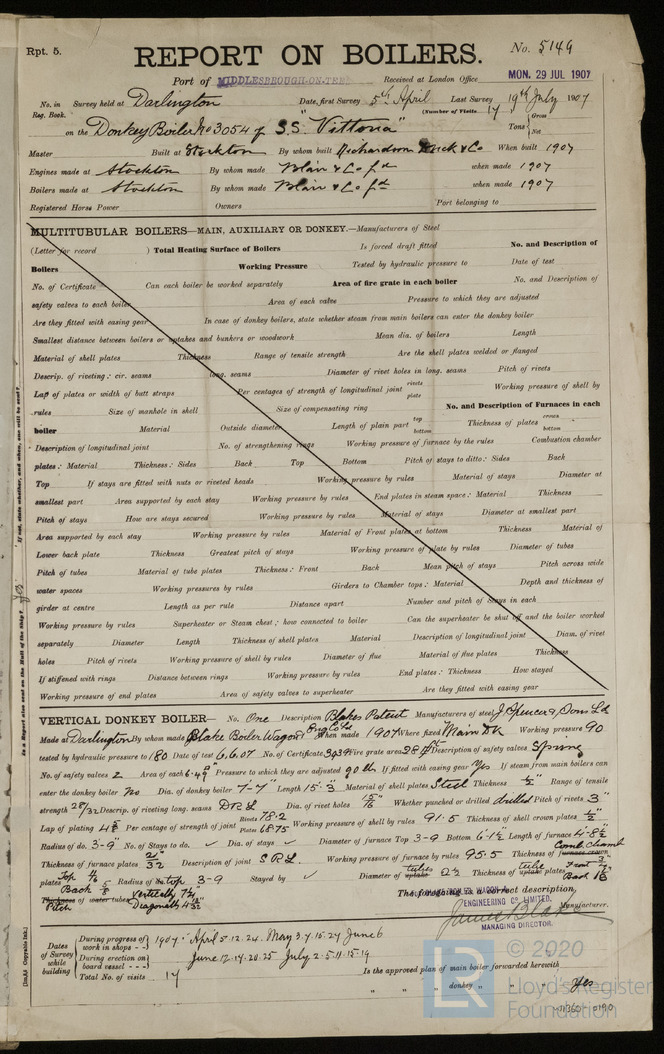 Rpt. 5.
REPORT ON BOILERS.
No. 5149
Port of MIDDLESBROUGH-ON-TEES Received at London Office MON. 29 JUL 1907
No. in Survey held at Darlington Date, first Survey 5th April Last Survey 19th July 1907
Reg. Book. (Number of Visits 17)
on the Donkey Boiler No 3054 of S.S. "Vittoria" Tons { Gross Net
Master Built at Stockton By whom built Richardson Duck & Co When built 1907
Engines made at Stockton By whom made Blair & Co Ld when made 1907
Boilers made at Stockton By whom made Blair & Co Ld when made 1907
Registered Horse Power Owners Port belonging to
MULTITUBULAR BOILERS—MAIN, AUXILIARY OR DONKEY.—Manufacturers of Steel
(Letter for record ) Total Heating Surface of Boilers Is forced draft fitted No. and Description of
Boilers Working Pressure Tested by hydraulic pressure to Date of test
No. of Certificate Can each boiler be worked separately Area of fire grate in each boiler No. and Description of
safety valves to each boiler Area of each valve Pressure to which they are adjusted
Are they fitted with easing gear In case of donkey boilers, state whether steam from main boilers can enter the donkey boiler
Smallest distance between boilers or uptakes and bunkers or woodwork Mean dia. of boilers Length
Material of shell plates Thickness Range of tensile strength Are the shell plates welded or flanged
Descrip. of riveting: cir. seams long. seams Diameter of rivet holes in long. seams Pitch of rivets
Lap of plates or width of butt straps Per centages of strength of longitudinal joint rivets plate Working pressure of shell by
rules Size of manhole in shell Size of compensating ring No. and Description of Furnaces in each
boiler Material Outside diameter Length of plain part top bottom Thickness of plates crown bottom
Description of longitudinal joint No. of strengthening rings Working pressure of furnace by the rules Combustion chamber
plates: Material Thickness: Sides Back Top Bottom Pitch of stays to ditto: Sides Back
Top If stays are fitted with nuts or riveted heads Working pressure by rules Material of stays Diameter at
smallest part Area supported by each stay Working pressure by rules End plates in steam space: Material Thickness
Pitch of stays How are stays secured Working pressure by rules Material of stays Diameter at smallest part
Area supported by each stay Working pressure by rules Material of Front plates at bottom Thickness Material of
Lower back plate Thickness Greatest pitch of stays Working pressure of plate by rules Diameter of tubes
Pitch of tubes Material of tube plates Thickness: Front Back Mean pitch of stays Pitch across wide
water spaces Working pressures by rules Girders to Chamber tops: Material Depth and thickness of
girder at centre Length as per rule Distance apart Number and pitch of Stays in each
Working pressure by rules Superheater or Steam chest; how connected to boiler Can the superheater be shut off and the boiler worked
separately Diameter Length Thickness of shell plates Material Description of longitudinal joint Diam. of rivet
holes Pitch of rivets Working pressure of shell by rules Diameter of flue Material of flue plates Thickness
If stiffened with rings Distance between rings Working pressure by rules End plates: Thickness How stayed
Working pressure of end plates Area of safety valves to superheater Are they fitted with easing gear
VERTICAL DONKEY BOILER— No. One Description Blakes Patent Manufacturers of steel J. Spencer & Sons Ld
Made at Darlington By whom made Blake Boiler Wagon & Eng Co Ld When made 1907 Where fixed Main Dk Working pressure 90
tested by hydraulic pressure to 180 Date of test 6.6.07 No. of Certificate 3939 Fire grate area 28 Description of safety valves Spring
No. of safety valves 2 Area of each 6.49 Pressure to which they are adjusted 90 lb If fitted with easing gear Yes If steam from main boilers can
enter the donkey boiler No Dia. of donkey boiler 7-7" Length 15.3 Material of shell plates Steel Thickness ½" Range of tensile
strength 28/32 Descrip. of riveting long. seams D R L Dia. of rivet holes 15/16" Whether punched or drilled drilled Pitch of rivets 3"
Lap of plating 4 5/8 Per centage of strength of joint Rivets 78.2 Plates 68.75 Working pressure of shell by rules 91.5 Thickness of shell crown plates ½"
Radius of do. 3-9" No. of Stays to do. ✓ Dia. of stays ✓ Diameter of furnace Top 3-9 Bottom 6-1½ Length of furnace 4-8½
Thickness of furnace plates 21/32 Description of joint S R L Working pressure of furnace by rules 95.5 Thickness of furnace crown Comb chamb
plates Top Back 5/8 Radius of do top 3-9 Stayed by ✓ Diameter of uptake tubes 2½ Thickness of uptake tube plates Front Back
Thickness of water tubes Pitch Vertically Diagonally The foregoing is a correct description,
ENGINEERING CO. LIMITED.
James Blake Manufacturer.
MANAGING DIRECTOR.
Dates of Survey while building
During progress of work in shops - - 1907. April 5.12.24. May 3.7.15.24 June 6
During erection on board vessel - - - June 12.14.20.25 July 2.5.11.15.19
Total No. of visits 17
Is the approved plan of main boiler forwarded herewith
" " " donkey " " " Yes
Is a Report also sent on the Hull of the Ship? Yes
If not, state whether, and when, one will be sent?
© 2020
Lloyd's Register
Foundation